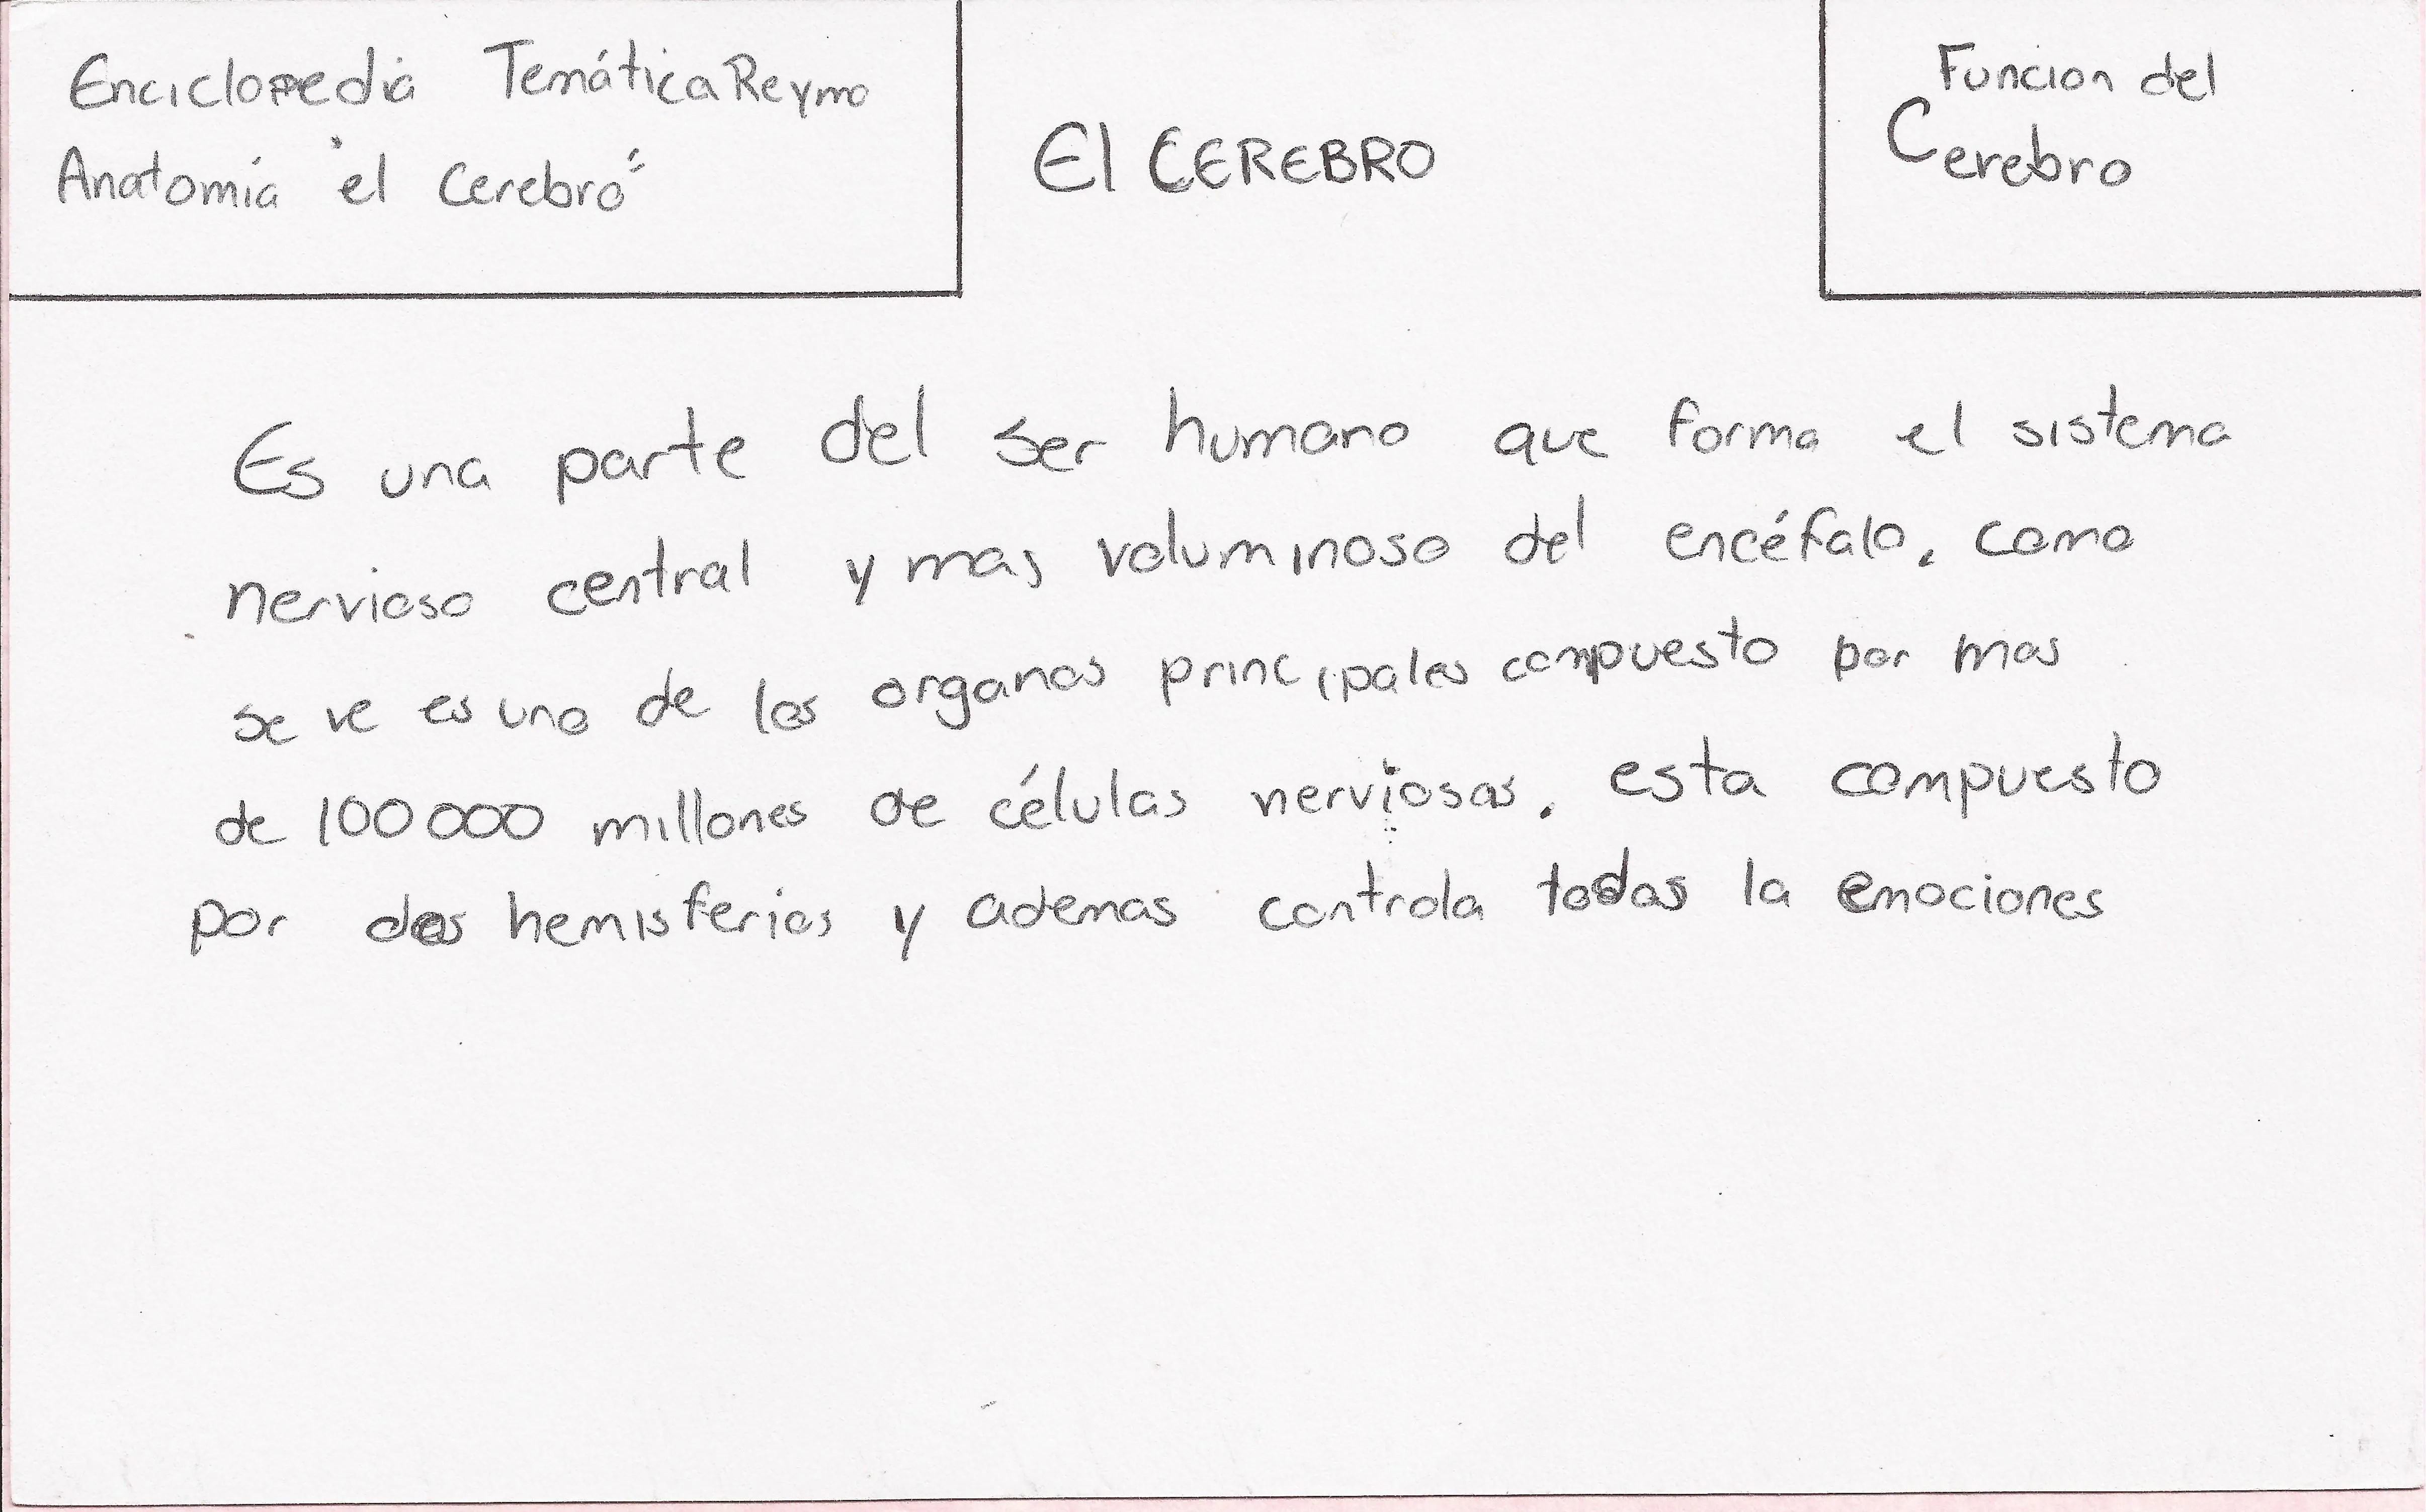 Enciclopedia Temática Reymo
Anatomía "el Cerebro"
El CEREBRO
Funcion del
Cerebro
Es una parte del ser humano que forma el sistema
nervioso central y mas voluminoso del encéfalo, como
se ve es uno de los organos principales compuesto por mas
de 100 000 millones de células nerviosas. esta compuesto
por dos hemisferios y ademas controla todas la emociones